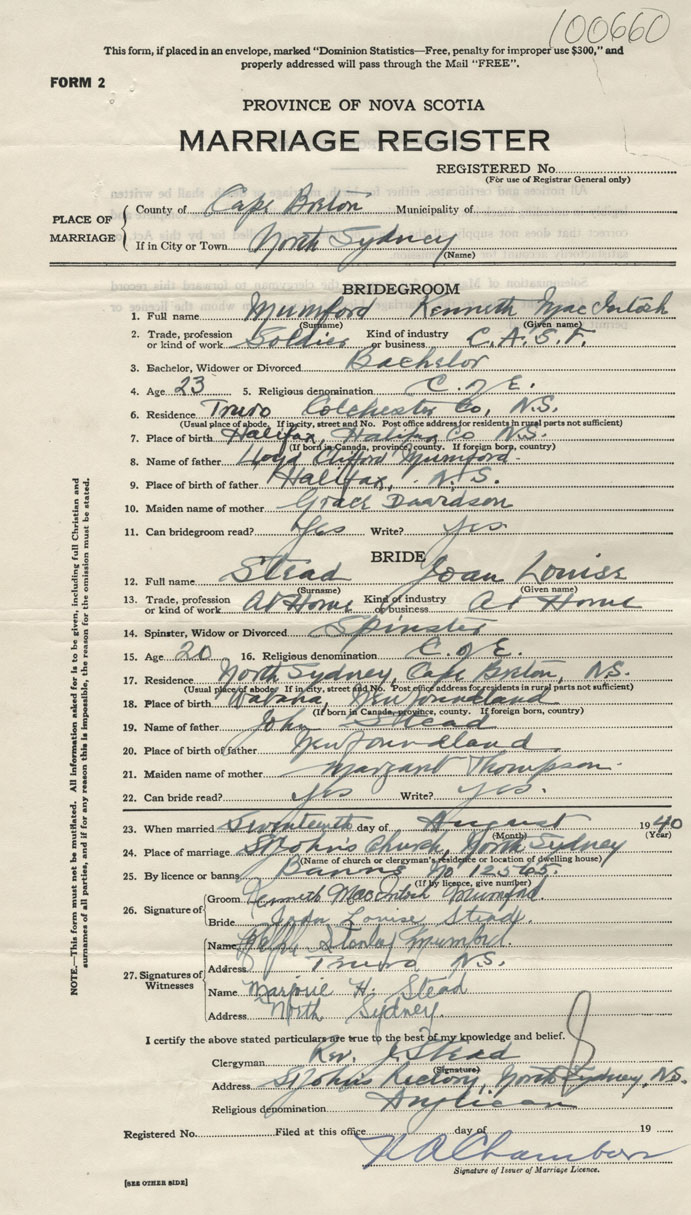 100660
This form, if placed in an envelope, marked "Dominion Statistics—Free, penalty for improper use $300," and
properly addressed will pass through the Mail "FREE".
FORM 2
PROVINCE OF NOVA SCOTIA
MARRIAGE REGISTER
REGISTERED No.
(For use of Registrar General only)
PLACE OF MARRIAGE
County of Cape Breton Municipality of
If in City or Town North Sydney
(Name)
BRIDEGROOM
1. Full name Mumford Kenneth MacIntosh
(Surname) (Given name)
2. Trade, profession or kind of work Soldier Kind of industry or business C.A.S.F.
3. Bachelor, Widower or Divorced Bachelor
4. Age 23 5. Religious denomination C. of E.
6. Residence Truro Colchester Co, N.S.
(Usual place of abode. If in city, street and No. Post office address for residents in rural parts not sufficient)
7. Place of birth Halifax, Halifax Co N.S.
(If born in Canada, province, county. If foreign born, country)
8. Name of father Lloyd Clifford Mumford
9. Place of birth of father Halifax, N.S.
10. Maiden name of mother Grace Davidson
11. Can bridegroom read? Yes Write? Yes
BRIDE
12. Full name Stead Joan Louise
(Surname) (Given name)
13. Trade, profession or kind of work At Home Kind of industry or business At Home
14. Spinster, Widow or Divorced Spinster
15. Age 20 16. Religious denomination C. of E.
17. Residence North Sydney, Cape Breton, N.S.
(Usual place of abode. If in city, street and No. Post office address for residents in rural parts not sufficient)
18. Place of birth Wabana, Newfoundland
(If born in Canada, province, county. If foreign born, country)
19. Name of father John Stead
20. Place of birth of father Newfoundland
21. Maiden name of mother Margaret Thompson
22. Can bride read? Yes Write? Yes.
23. When married Seventeenth day of August 1940
(Month) (Year)
24. Place of marriage St John's Church, North Sydney
(Name of church or clergyman's residence or location of dwelling house)
25. By licence or banns Banns No 12565
(If by licence, give number)
26. Signature of
Groom Kenneth MacIntosh Mumford
Bride Joan Louise Stead
27. Signatures of Witnesses
Name Stanley
Address Truro N.S.
Name Marjorie H. Stead
Address North Sydney.
I certify the above stated particulars are true to the best of my knowledge and belief.
Clergyman Rev. J. Stead
(Signature)
Address St John's Rectory, North Sydney, N.S.
Religious denomination Anglican
Registered No. Filed at this office day of 19
Chambers
Signature of Issuer of Marriage Licence.
[SEE OTHER SIDE]
NOTE.—This form must not be mutilated. All information asked for is to be given, including full Christian and
surnames of all parties, and if for any reason this is impossible, the reason for the omission must be stated.